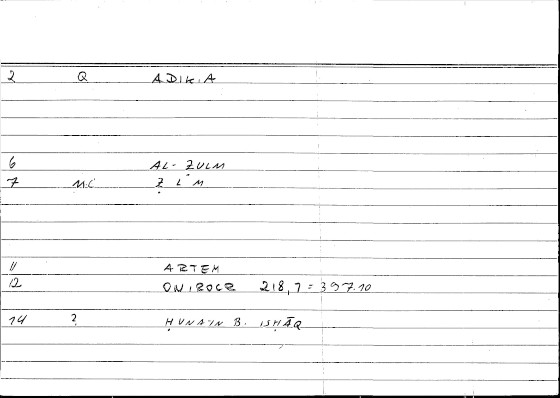 2 Q ADIKIA
6 AL-ẒULM
7 MC Ẓ L M
11 ARTEM
12 ONIROCR 218,7 = 397.10
14 2 ḤUNAYN B. ISḤĀQ